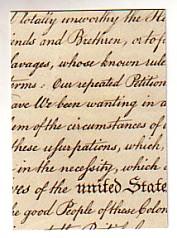 totally unworthy the He
inds and Brethren, or to f
Savages, whose known rule
erms. Our repeated Petition
ave We been wanting in a
em of the circumstances of
these usurpations, which,
in the necessity, which d
ves of the united State
he good People of these Colon